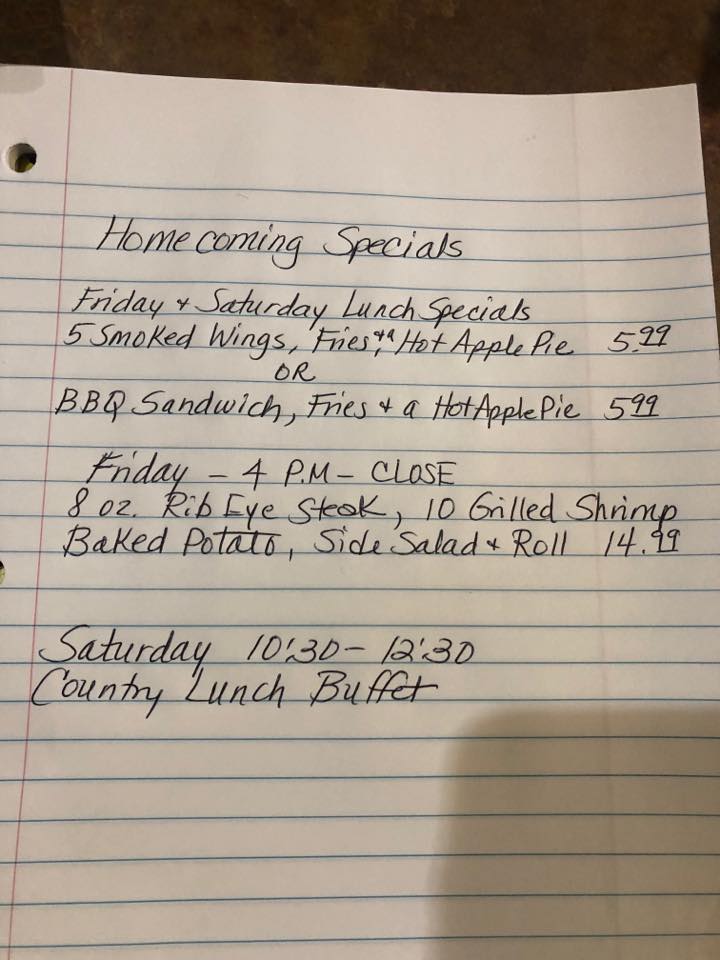 Homecoming Specials
Friday + Saturday Lunch Specials
5 Smoked Wings, Fries, + a Hot Apple Pie 5.99
OR
BBQ Sandwich, Fries + a Hot Apple Pie 5 99
Friday - 4 P.M - CLOSE
8 oz. Rib Eye Steak, 10 Grilled Shrimp
Baked Potato, Side Salad + Roll 14.99
Saturday 10:30 - 12:30
Country Lunch Buffet